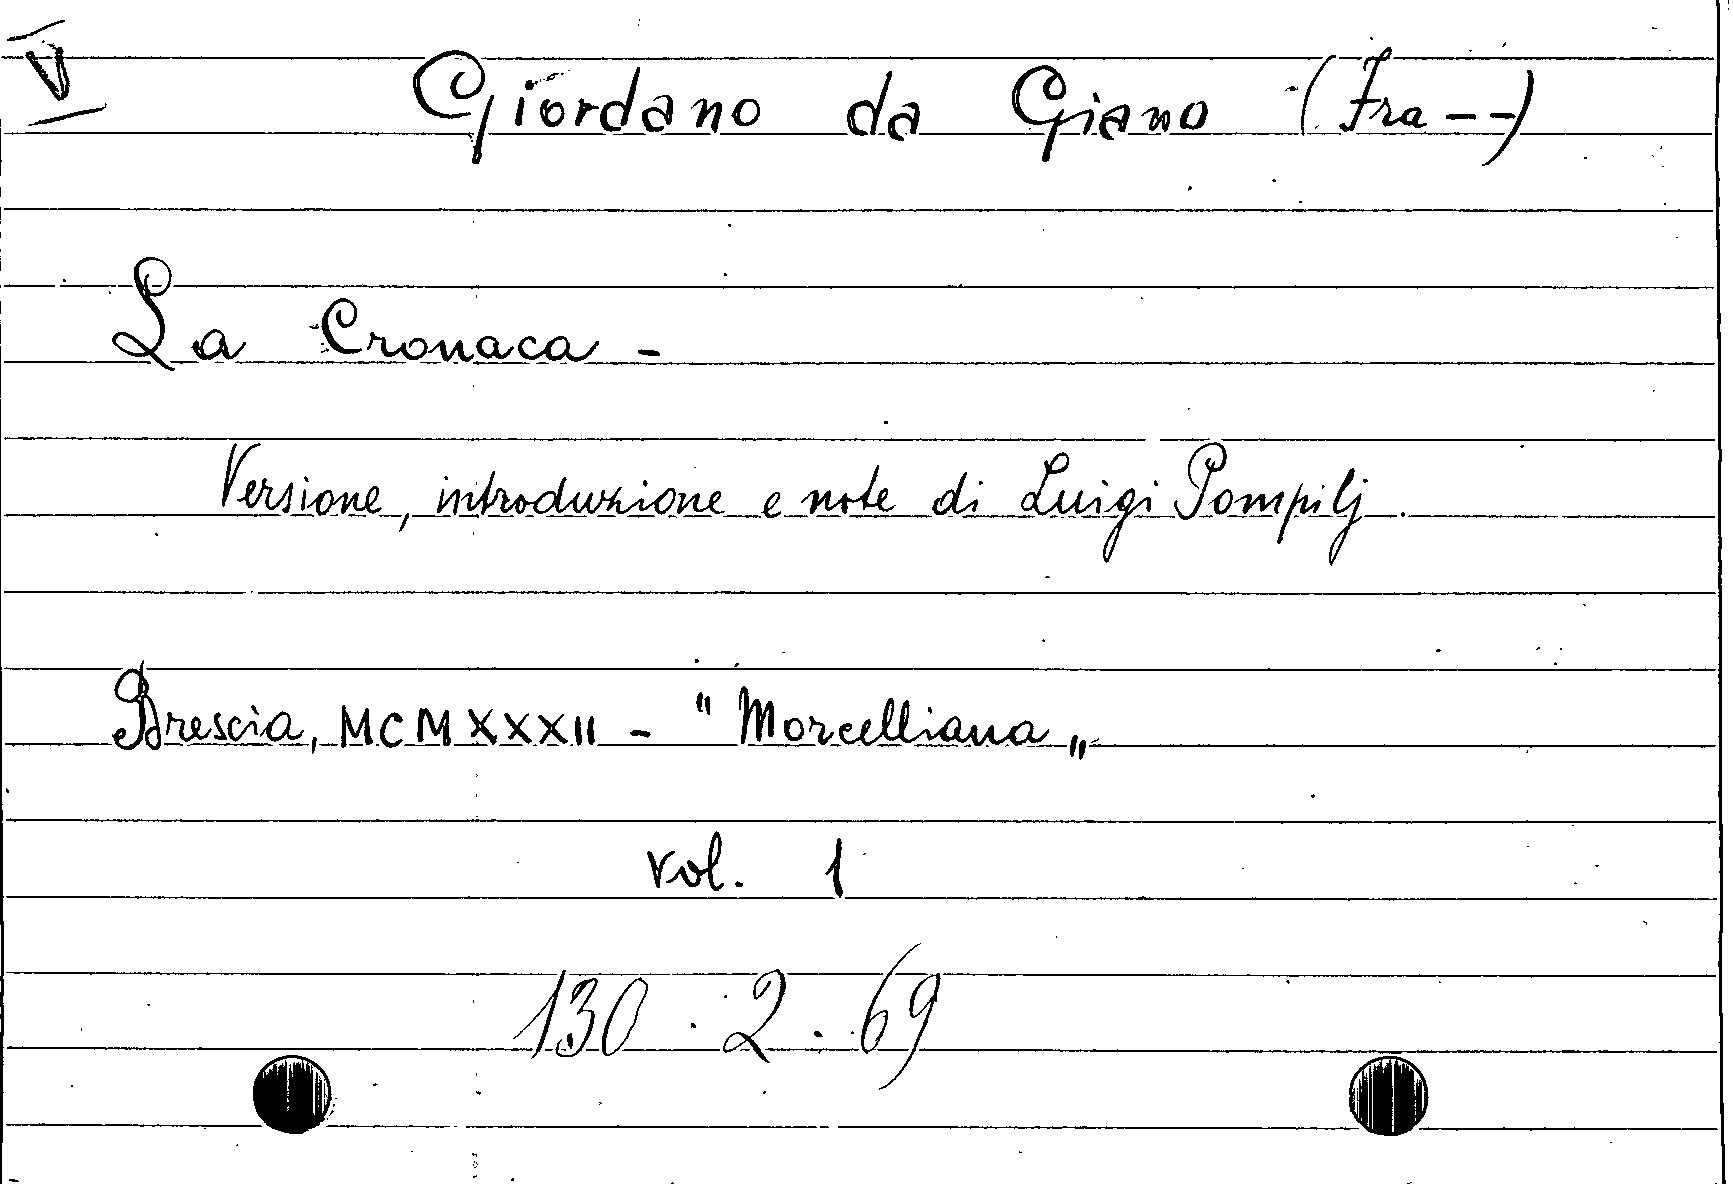 V
Giordano da Giano (Fra --)
La Cronaca -
Versione, introduzione e note di Luigi Pompilj.
Brescia, MCMXXXII - "Morcelliana„
Vol. 1
130.2.69